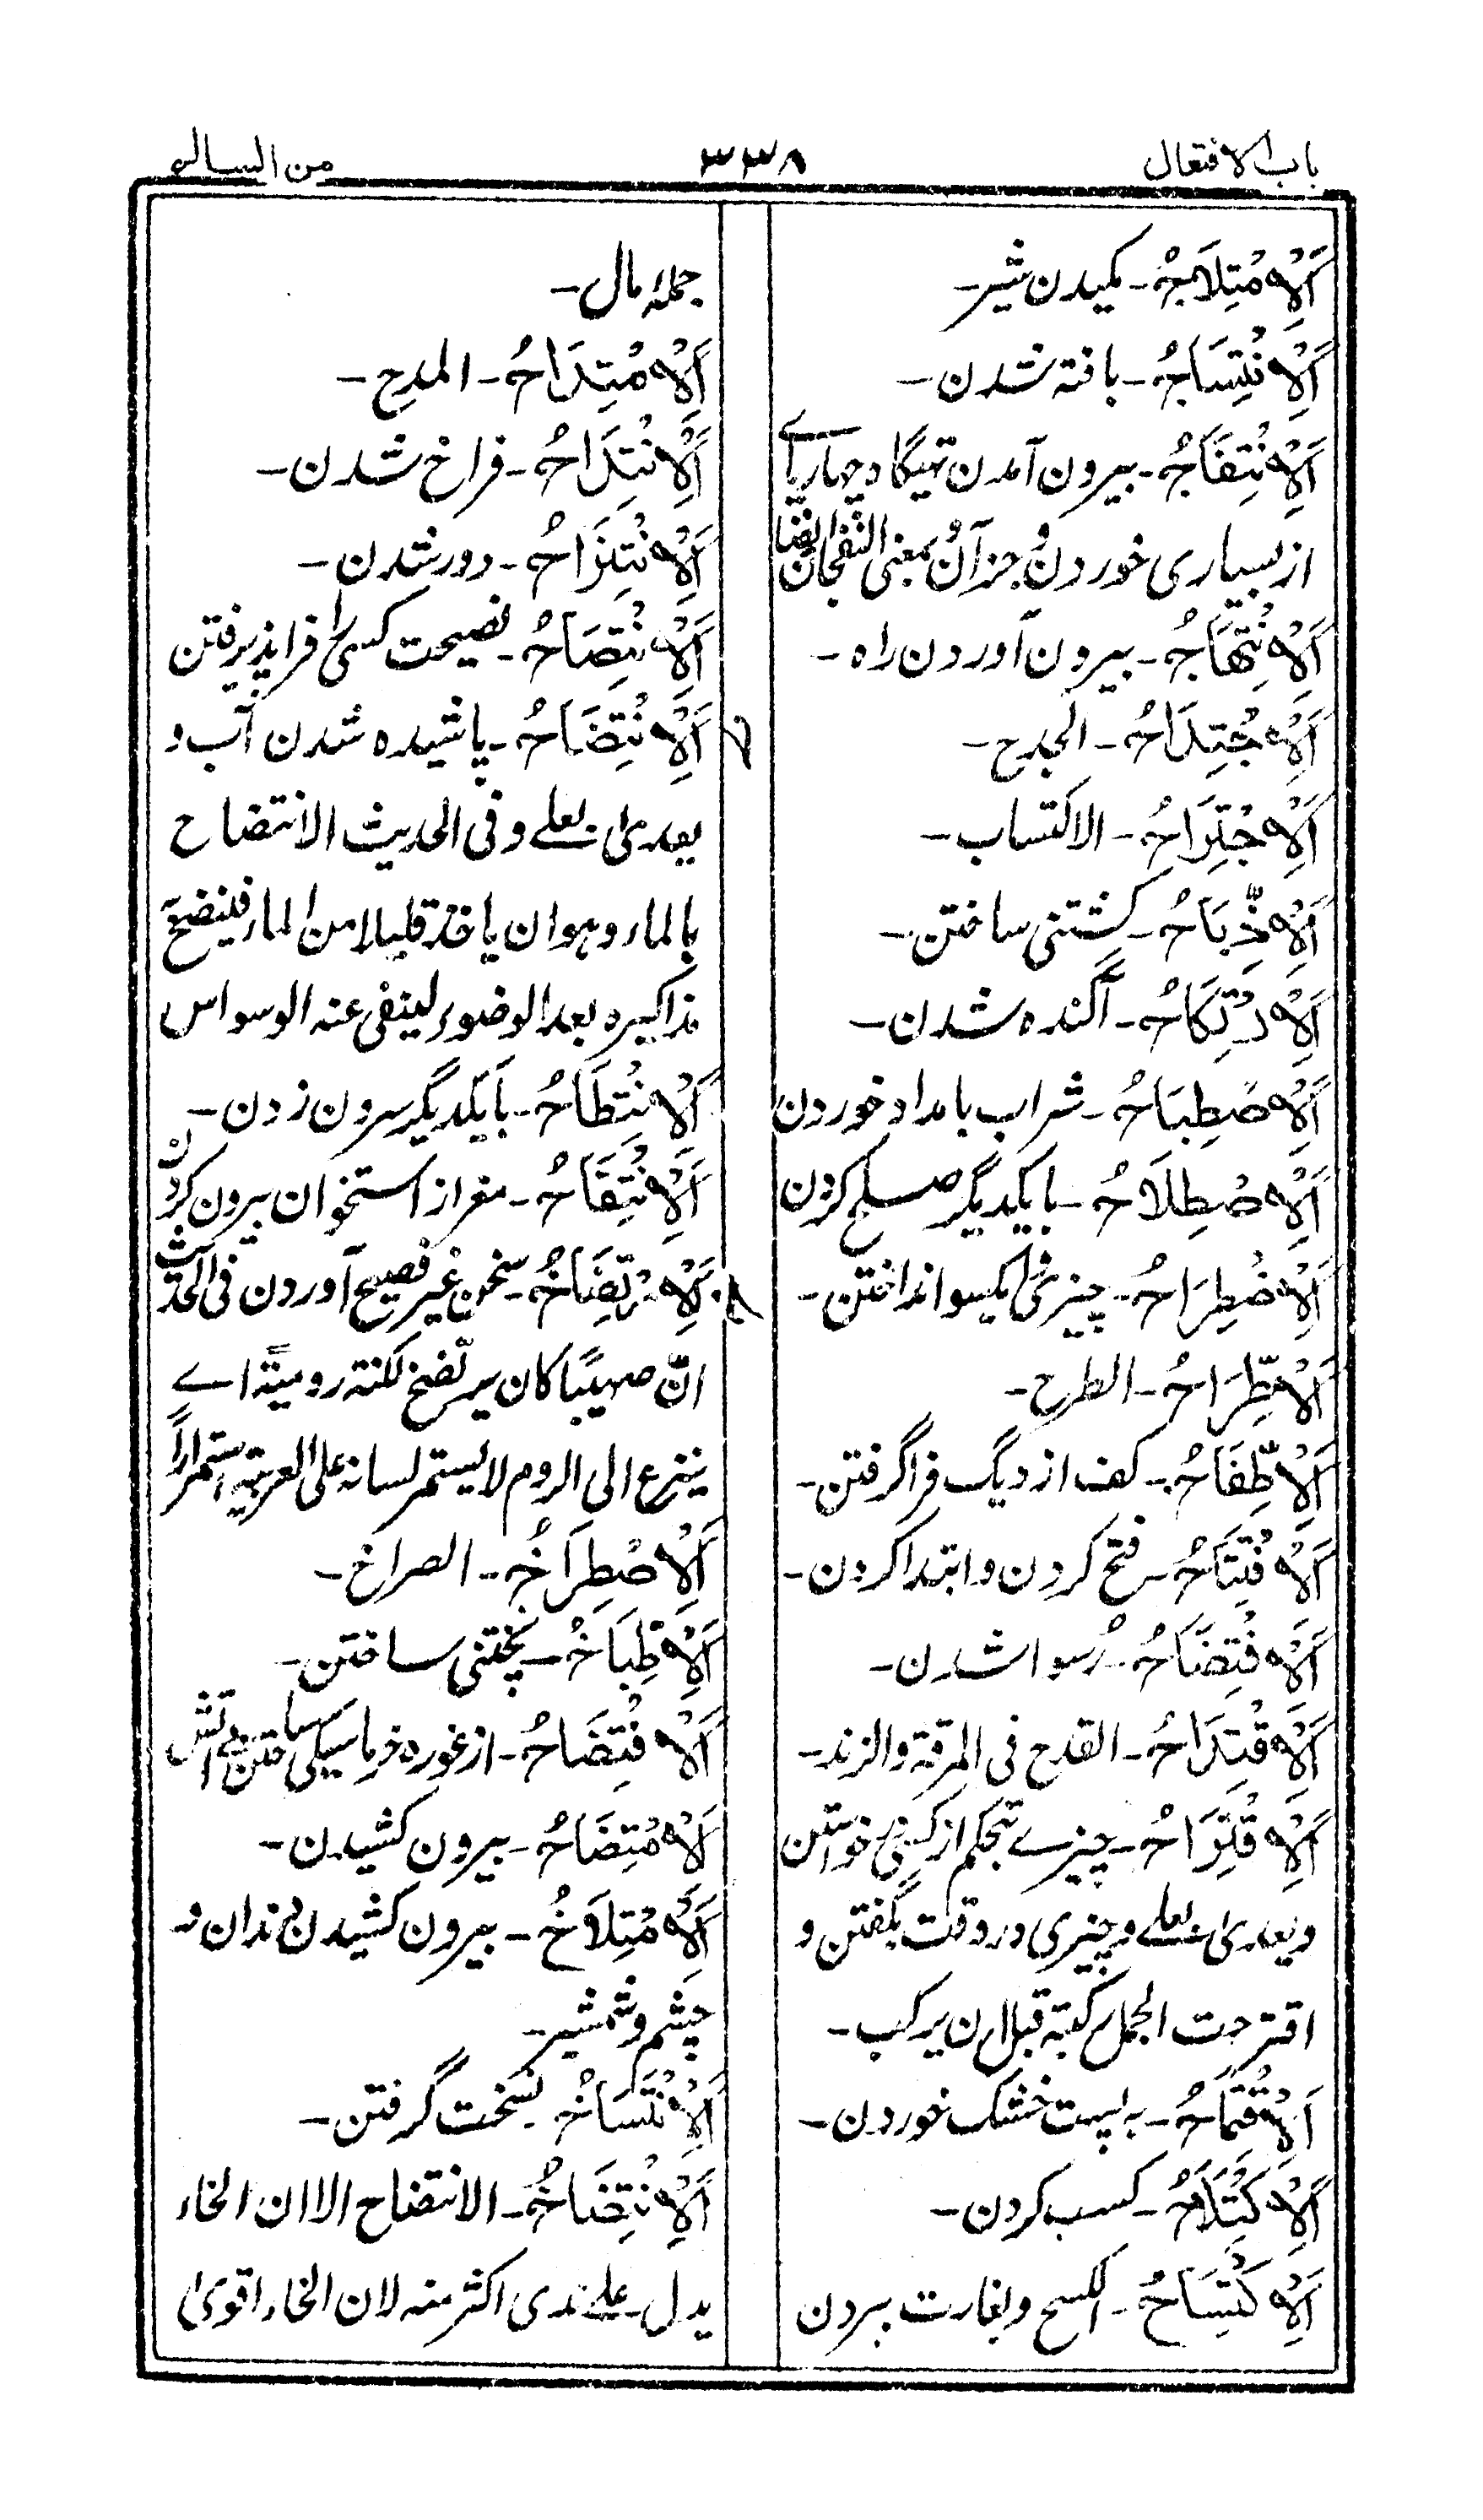 باب الافتعال
۳۳۸
من السالم
اَلْاِمْتِلَاجُ - مکیدن شیر -
اَلْاِنْتِسَاجُ - بافته شدن -
اَلْاِنْتِفَاجُ - بیرون آمدن تهیگاه چهارپای
از بسیاری خوردن و جز آن و بمعنی النفجان ایضا
اَلْاِنْتِهَاجُ - بیرون آوردن راه -
اَلْاِجْتِدَاحُ - الجدح -
اَلْاِجْتِرَاحُ - الاکتساب -
اَلْاِذِّبَاحُ - کشتنی ساختن -
اَلْاِرْتِكَاحُ - آگنده شدن -
اَلْاِصْطِبَاحُ - شراب بامداد خوردن
اَلْاِصْطِلَاحُ - با یکدیگر صلح کردن
اَلْاِضْطِرَاحُ - چیزی را بیکسو انداختن -
اَلْاِطِّرَاحُ - الطرح -
اَلْاِطِّفَاحُ - کف از دیگ فرا گرفتن -
اَلْاِفْتِتَاحُ - فتح کردن و ابتدا کردن -
اَلْاِفْتِضَاحُ - رُسوا شدن -
اَلْاِقْتِدَاحُ - القدح فی المرقة والزند -
اَلْاِقْتِرَاحُ - چیزے بتحکم از کسی خواستن
ویعدی بعلے و چیزی در وقت بگفتن و
اقترحت الجمل رکبته قبل ان یرکب -
اَلْاِقْتِمَاحُ - پست خشک خوردن -
اَلْاِكْتِدَاحُ - کسب کردن -
اَلْاِكْتِسَاحُ - الکسح و بغارت ببردن
جملهٔ مال -
اَلْاِمْتِدَاحُ - المدح -
اَلْاِنْتِدَاحُ - فراخ شدن -
اَلْاِنْتِزَاحُ - دور شدن -
اَلْاِنْتِصَاحُ - نصیحت کسی را فرا پذیرفتن
اَلْاِنْتِضَاحُ - پاشیده شدن آب و
یعدی بعلے و فی الحدیث الانتضاح
بالماء وهو ان یاخذ قلیلا من الماء فینضح
مذاکیره بعد الوضوء لینفی عنه الوسواس
اَلْاِنْتِطَاحُ - با یکدیگر سرون زدن -
اَلْاِنْتِقَاحُ - مغز از استخوان بیرون کردن
اَلْاِرْتِضَاخُ - سخن غیر فصیح آوردن فی الحدیث
انّ صهیبًا کان یرتضخ لکنة رومیّة اے
ینزع الی الروم لا یستمر لسانه علی العربیة استمرارًا
اَلْاِصْطِرَاخُ - الصراخ -
اَلْاِطِّبَاخُ - پختنی ساختن -
اَلْاِفْتِضَاخُ - از غوره خرما سیکی ساختن بے آتش
اَلْاِمْتِضَاخُ - بیرون کشیدن -
اَلْاِمْتِلَاخُ - بیرون کشیدن دندان و
چشم و شمشیر -
اَلْاِنْتِسَاخُ - نسخت گرفتن -
اَلْاِنْتِضَاخُ - الانتضاح الا ان الخاء
یدل علے ندی اکثر منه لان الخاء اقوی